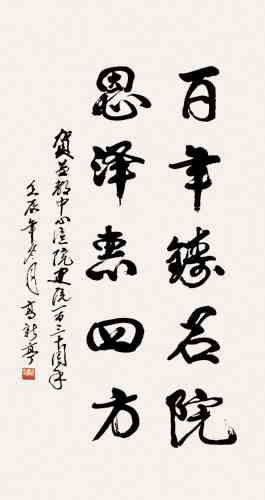 百年铸名院
恩泽惠四方
贺益都中心医院建院一百三十周年
壬辰年 月 高新亭